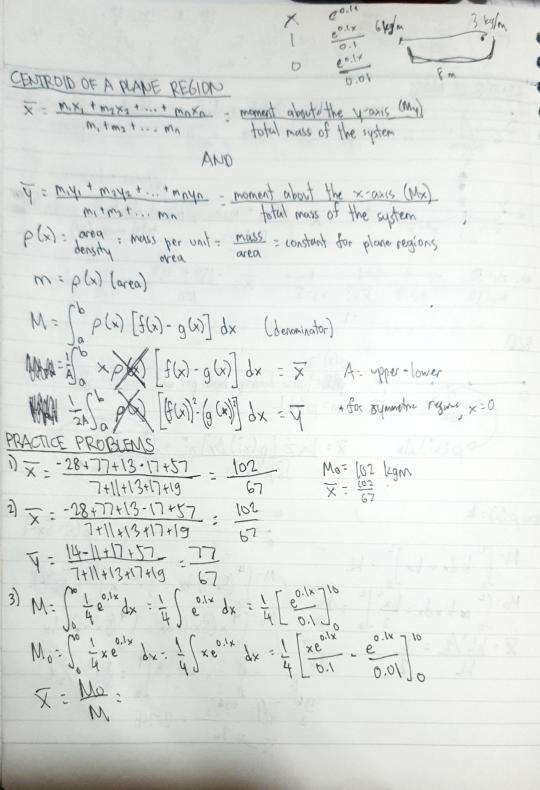 x e^0.1x
1 e^0.1x/0.1 6 kg/m 3 kg/m
0 e^0.1x/0.01 8 m
CENTROID OF A PLANE REGION
x̄ = (m₁x₁ + m₂x₂ + ... + mₙxₙ)/(m₁ + m₂ + ... mₙ) = moment about the y-axis (My)/total mass of the system
AND
ȳ = (m₁y₁ + m₂y₂ + ... + mₙyₙ)/(m₁ + m₂ + ... mₙ) = moment about the x-axis (Mx)/total mass of the system
ρ(x) = area density = mass per unit area = mass/area = constant for plane regions
m = ρ(x) (area)
M = ∫_a^b ρ(x) [f(x) - g(x)] dx (denominator)
= 1/A ∫_a^b x [f(x) - g(x)] dx = x̄ A = upper - lower
1/2A ∫_a^b [(f(x))² - (g(x))²] dx = ȳ * for symmetric regions, x = 0
PRACTICE PROBLEMS
1) x̄ = (-28 + 77 + 13 - 17 + 57)/(7 + 11 + 13 + 17 + 19) = 102/67 M₀ = 102 kgm
x̄ = 102/67
2) x̄ = (-28 + 77 + 13 - 17 + 57)/(7 + 11 + 13 + 17 + 19) = 102/67
ȳ = (14 - 11 + 17 + 57)/(7 + 11 + 13 + 17 + 19) = 77/67
3) M = ∫_0^10 1/4 e^0.1x dx = 1/4 ∫ e^0.1x dx = 1/4 [e^0.1x/0.1]_0^10
M₀ = ∫_0^10 1/4 x e^0.1x dx = 1/4 ∫ x e^0.1x dx = 1/4 [x e^0.1x/0.1 - e^0.1x/0.01]_0^10
x̄ = M₀/M =